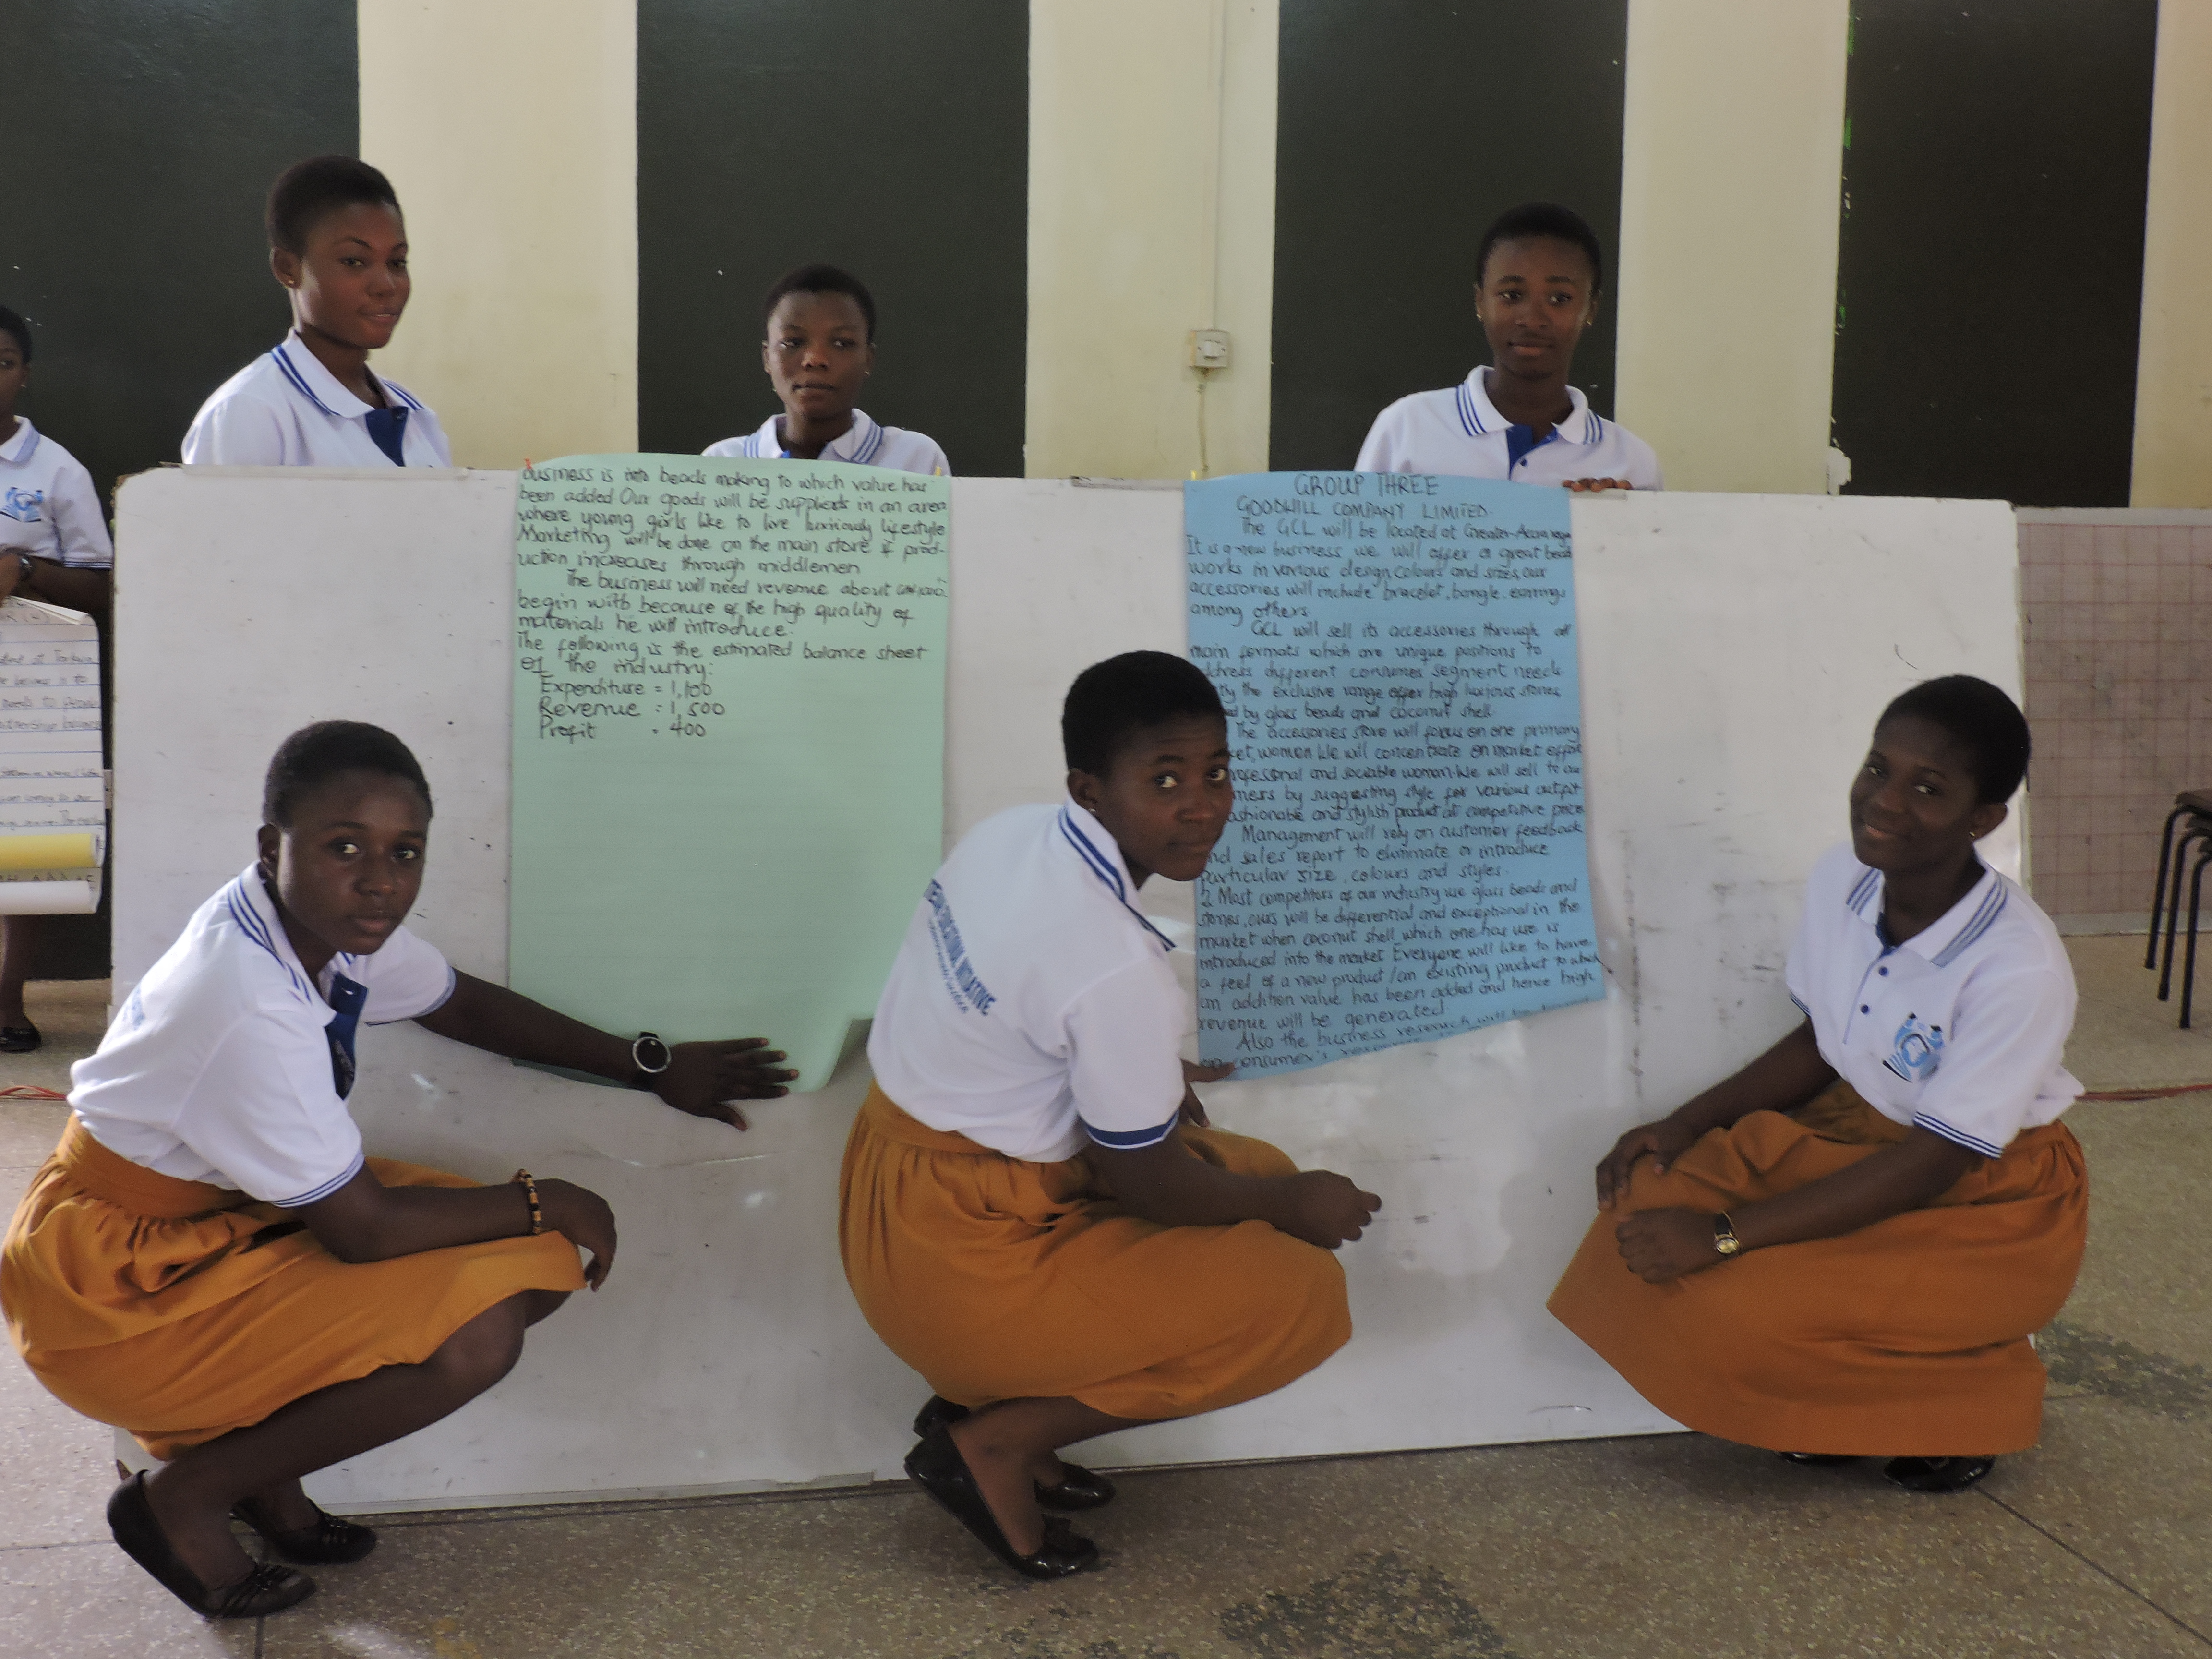 business is into beads making to which value has
been added Our goods will be supplied in an area
where young girls like to live luxiriously lifestyle
Marketing will be done on the main store if prod-
uction increases through middlemen
The business will need revenue about
begin with because of the high quality of
materials he will introduce.
The following is the estimated balance sheet
of the industry:
Expenditure = 1,100
Revenue = 1,500
Profit = 400
GROUP THREE
GOODWILL COMPANY LIMITED.
The GCL will be located at Greater-Accra
It is a new business, we will offer a great bead
works in various design, colours and sizes, our
accessories will include bracelet, bangle, earrings
among others.
GCL will sell its accessories through
main formats which are unique positions to
address different consumer segment needs
the exclusive range offer high luxious stones
by glass beads and coconut shell.
The accessories store will focus on one primary
women. We will concentrate on market
and sociable woman. We will sell to our
by suggesting style for various outfit
and stylish product at competitive price
Management will rely on customer feedback
and sales report to eliminate or introduce
particular size, colours and styles.
2. Most competitors of our industry use glass beads and
stones, ours will be differential and exceptional in the
market when coconut shell, which one has use is
introduced into the market Everyone will like to have
a feel of a new product / an existing product to which
an addition value has been added and hence high
revenue will be generated
Also the business research will be
on consumer's
INITIATIVE